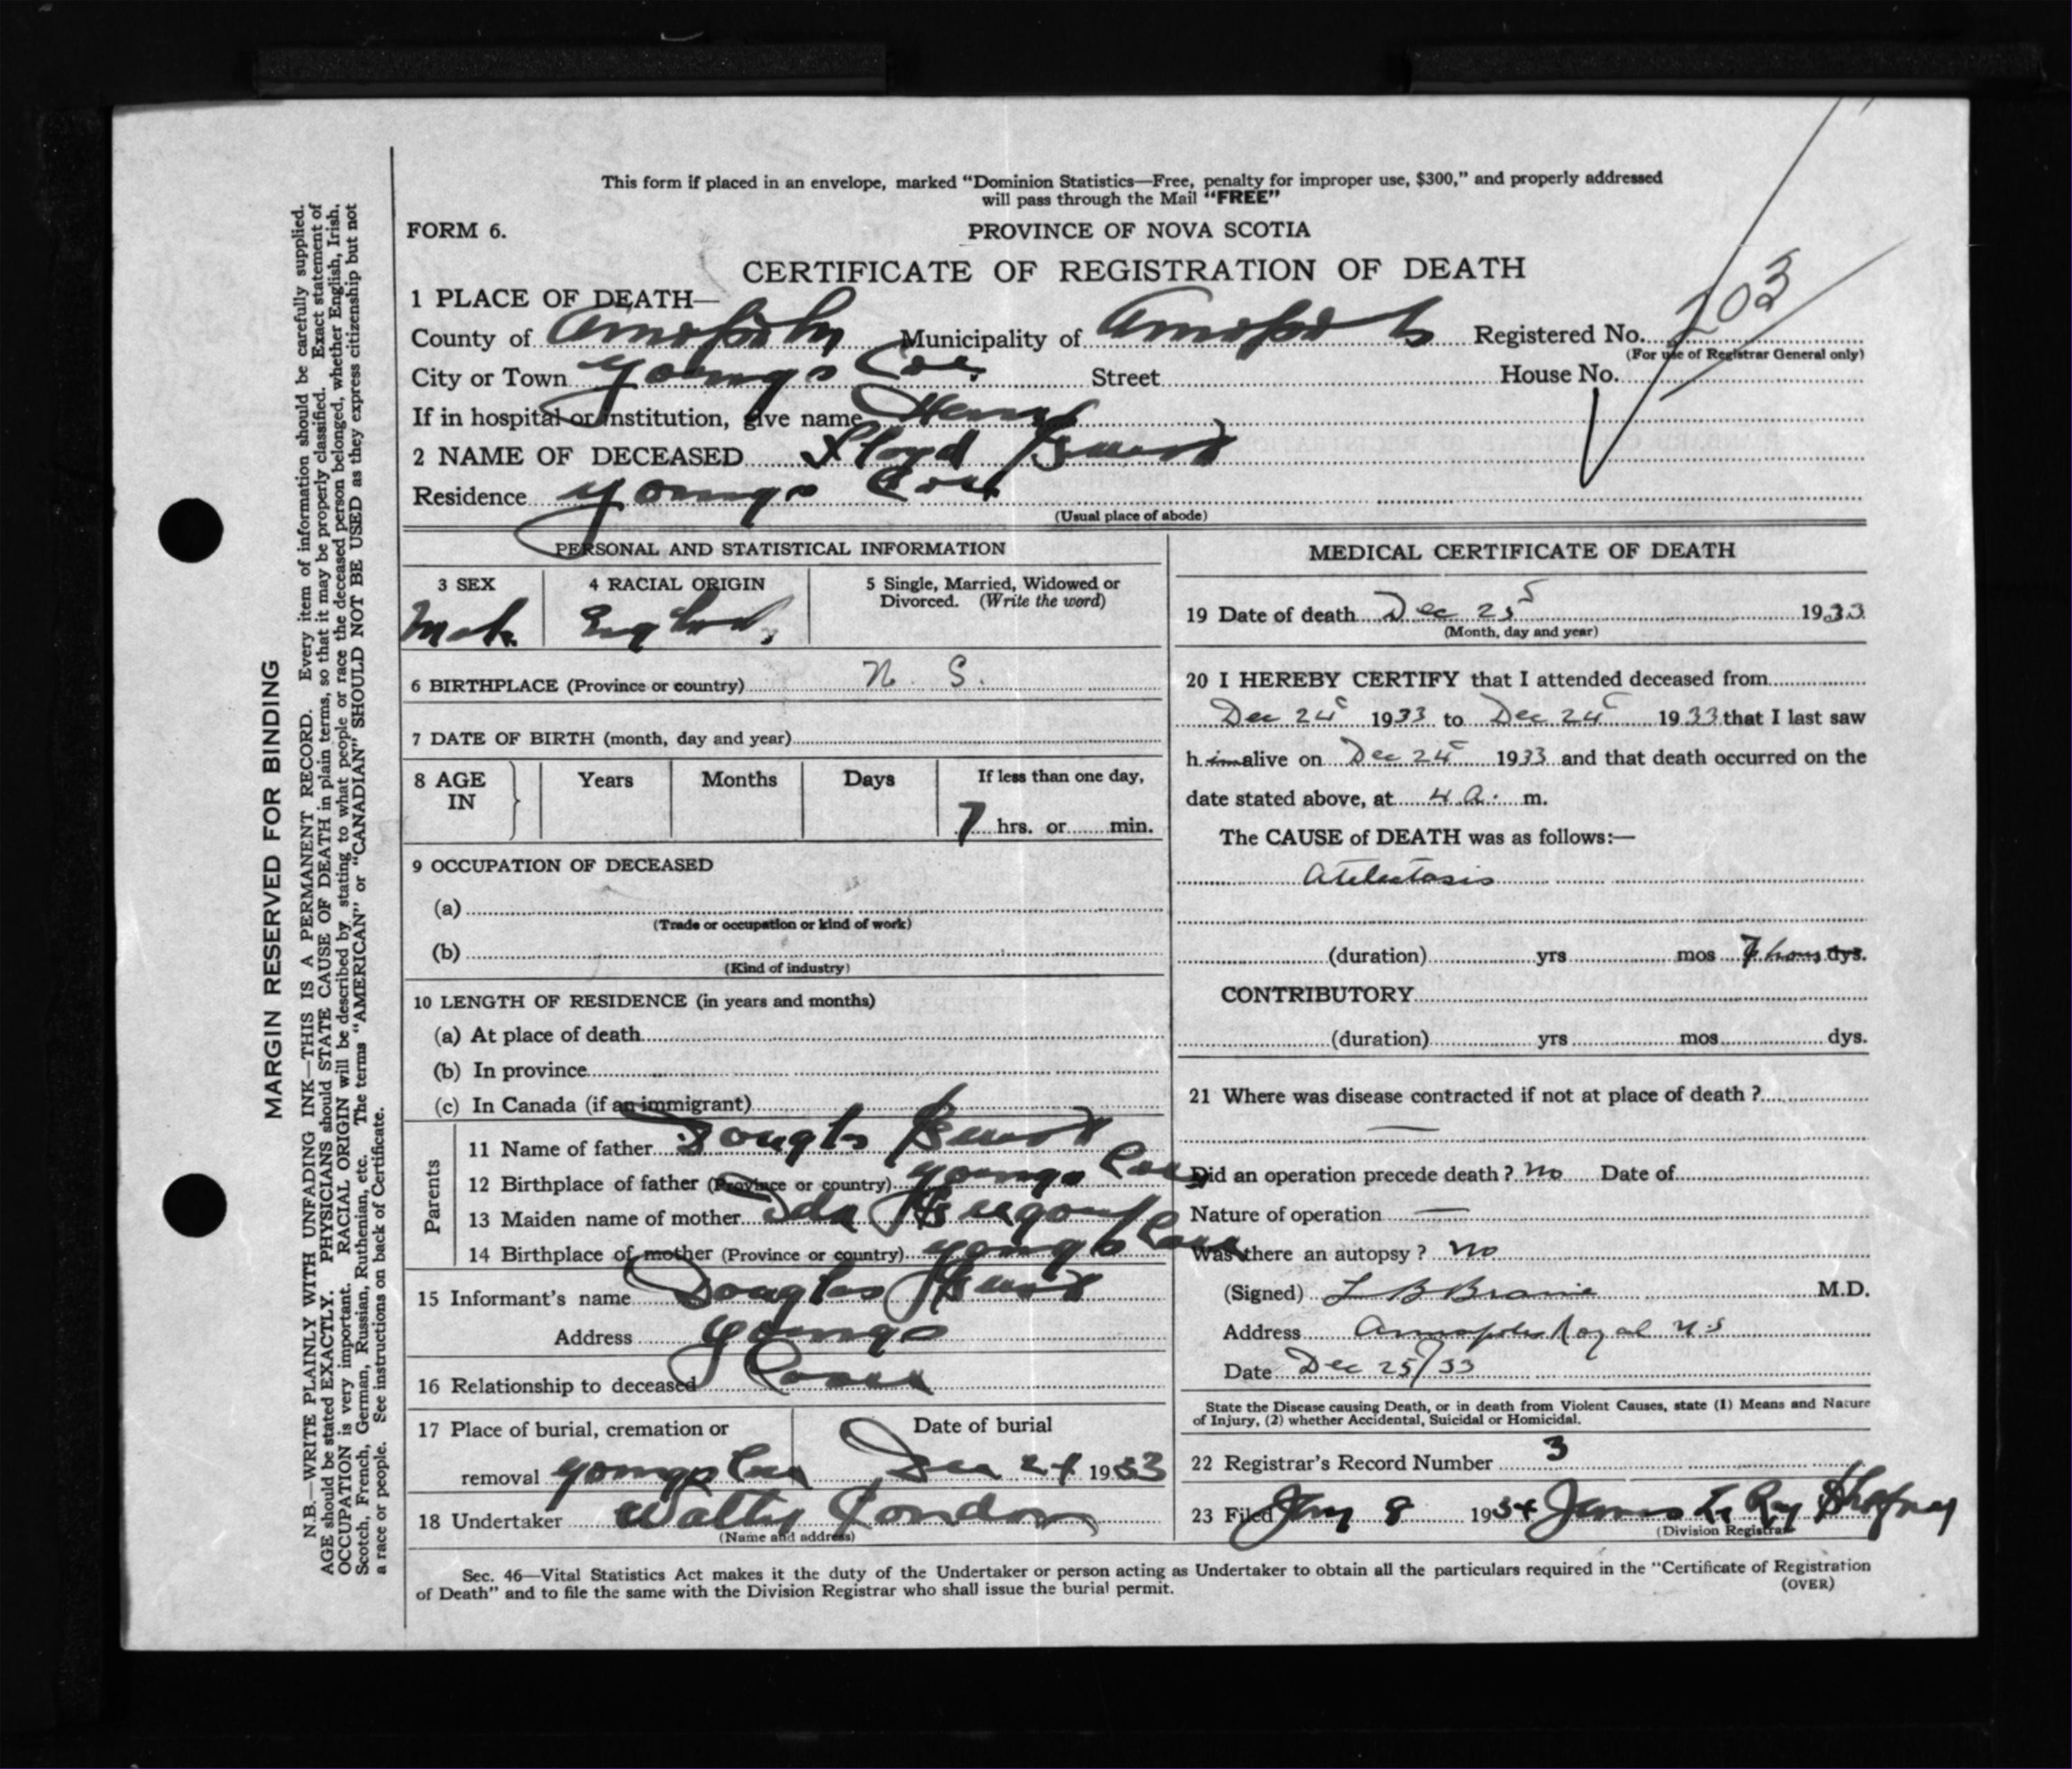 This form if placed in an envelope, marked “Dominion Statistics—Free, penalty for improper use, $300,” and properly addressed
will pass through the Mail “FREE”
FORM 6.
PROVINCE OF NOVA SCOTIA
CERTIFICATE OF REGISTRATION OF DEATH
1 PLACE OF DEATH—
County of Annapolis Municipality of Annapolis Registered No. 203
(For use of Registrar General only)
City or Town Youngs Cove Street House No.
If in hospital or institution, give name
2 NAME OF DECEASED Floyd
Residence Youngs Cove
(Usual place of abode)
PERSONAL AND STATISTICAL INFORMATION
3 SEX 4 RACIAL ORIGIN 5 Single, Married, Widowed or
Divorced. (Write the word)
Male
6 BIRTHPLACE (Province or country) N. S.
7 DATE OF BIRTH (month, day and year)
8 AGE IN Years Months Days If less than one day,
7 hrs. or min.
9 OCCUPATION OF DECEASED
(a)
(Trade or occupation or kind of work)
(b)
(Kind of industry)
10 LENGTH OF RESIDENCE (in years and months)
(a) At place of death
(b) In province
(c) In Canada (if an immigrant)
Parents
11 Name of father Douglas
12 Birthplace of father (Province or country) Youngs Cove
13 Maiden name of mother Ida
14 Birthplace of mother (Province or country) Youngs Cove
15 Informant's name Douglas
Address Youngs
Cove
16 Relationship to deceased
17 Place of burial, cremation or Date of burial
removal Youngs Cove Dec 1933
18 Undertaker Condon
(Name and address)
MEDICAL CERTIFICATE OF DEATH
19 Date of death Dec 25 1933
(Month, day and year)
20 I HEREBY CERTIFY that I attended deceased from
Dec 24 1933 to Dec 24 1933 that I last saw
h im alive on Dec 24 1933 and that death occurred on the
date stated above, at 4 a. m.
The CAUSE of DEATH was as follows:—
Atelectasis
(duration) yrs mos 7 hours dys.
CONTRIBUTORY
(duration) yrs mos dys.
21 Where was disease contracted if not at place of death ?
—
Did an operation precede death ? no Date of
Nature of operation —
Was there an autopsy ? no
(Signed) L B Braine M.D.
Address Annapolis Royal N.S
Date Dec 25/33
State the Disease causing Death, or in death from Violent Causes, state (1) Means and Nature
of Injury, (2) whether Accidental, Suicidal or Homicidal.
22 Registrar's Record Number 3
23 Filed Jany 8 1934 James
(Division Registrar)
Sec. 46—Vital Statistics Act makes it the duty of the Undertaker or person acting as Undertaker to obtain all the particulars required in the “Certificate of Registration
of Death” and to file the same with the Division Registrar who shall issue the burial permit.
(OVER)
MARGIN RESERVED FOR BINDING
N.B.—WRITE PLAINLY WITH UNFADING INK—THIS IS A PERMANENT RECORD. Every item of information should be carefully supplied.
AGE should be stated EXACTLY. PHYSICIANS should STATE CAUSE OF DEATH in plain terms, so that it may be properly classified. Exact statement of
OCCUPATION is very important. RACIAL ORIGIN will be described by stating to what people or race the deceased person belonged, whether English, Irish,
Scotch, French, German, Russian, Ruthenian, etc. The terms “AMERICAN” or “CANADIAN” SHOULD NOT BE USED as they express citizenship but not
a race or people. See instructions on back of Certificate.